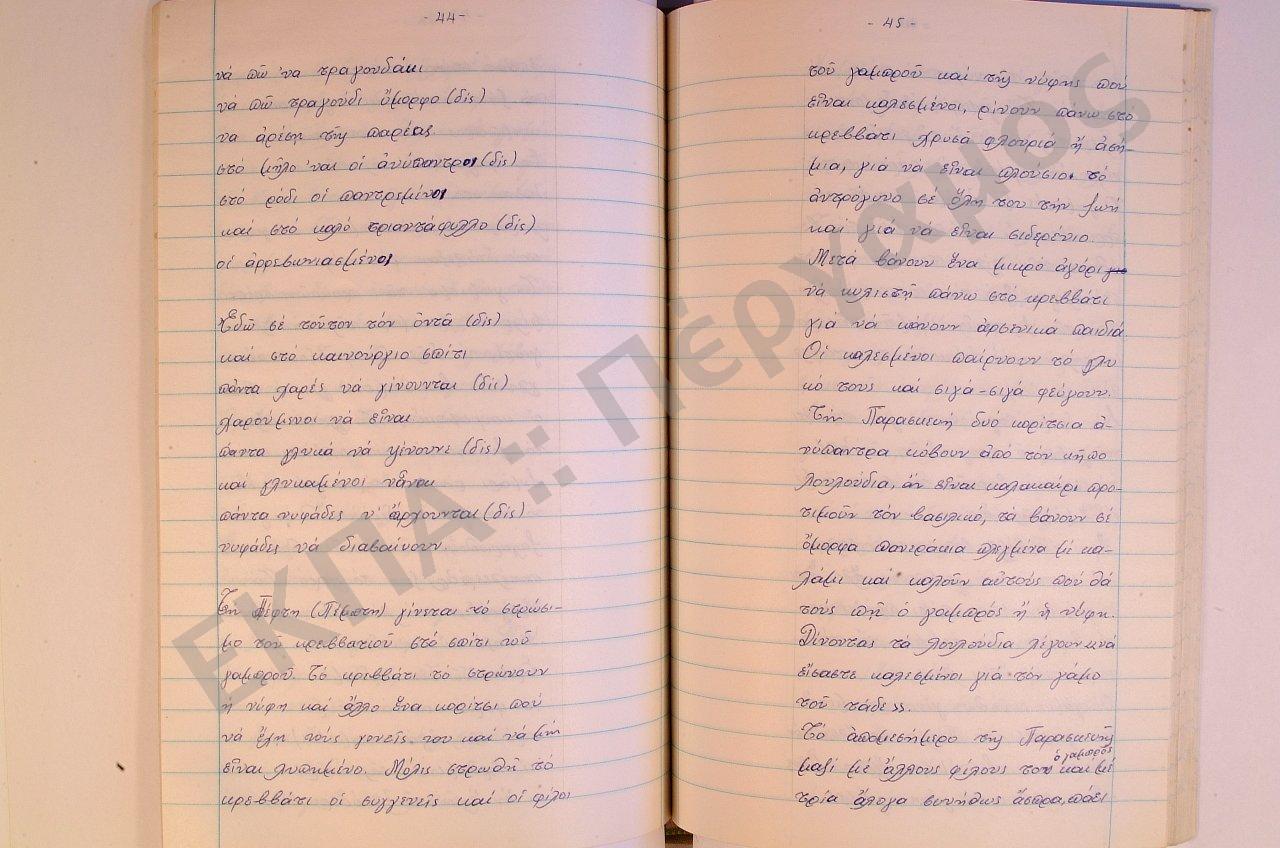 - 44 -
νά πῶ 'να τραγουδάκι
νά πῶ τραγούδι ὄμορφο (δίς)
να ἀρέση τῆς παρέας.
στό μῆλο 'ναι οἱ ἀνύπαντροι (δίς)
στό ρόδι οἱ παντρεμένοι
καί στό καλό τριαντάφυλλο (δίς)
οἱ ἀρρεβωνιασμένοι
Ἐδῶ σέ τοῦτον τόν ὀντᾶ (δίς)
καί στό καινούργιο σπίτι
πάντα χαρές νά γίνουνται (δίς)
χαρούμενοι νά εἶναι
πάντα γλυκά νά γένουνε (δίς)
καί γλυκαμένοι νἆναι
πάντα νυφάδες ν' ἔρχουνται (δίς)
νυφάδες νά διαβαίνουν
Τή Πέφτη (Πέμπτη) γίνεται τό στρώσι-
μο τοῦ κρεββατιοῦ στό σπίτι τοῦ
γαμπροῦ. Τό κρεββάτι τό στρώνουν
ἡ νύφη καί ἄλλο ἕνα κορίτσι πού
νά ἔχη τούς γονεῖς του καί νά μήν
εἶναι λυπημένο. Μόλις στρωθῆ τό
κρεββάτι οἱ συγγενεῖς καί οἱ φίλοι
- 45 -
τοῦ γαμπροῦ καί τῆς νύφης πού
εἶναι καλεσμένοι, ρίνουν πάνω στό
κρεββάτι χρυσά φλουριά ἤ ἀσή-
μια, γιά νά εἶναι πλούσιο τό
ἀντρόγυνο σέ ὅλη του τήν ζωή
καί γιά νά εἶναι σιδερένιο.
Μετά βάνουν ἕνα μικρό ἀγόρι
νά κυλιστῆ πάνω στό κρεββάτι
γιά νά κάνουν ἀρσενικά παιδιά.
Οἱ καλεσμένοι παίρνουν τό γλυ
κό τους καί σιγά-σιγά φεύγουν.
Τήν Παρασκευή δυό κορίτσια ἀ-
νύπαντρα κόβουν ἀπό τόν κῆπο
λουλούδια, ἄν εἶναι καλακαίρι προ-
τιμοῦν τόν βασιλικό, τά βάνουν σέ
ὄμορφα πανεράκια πλεγμένα μέ κα-
λάμι καί καλοῦν αὐτούς πού θά
τούς πῆ ὁ γαμπρός ἤ ἡ νύφη.
Δίνοντας τά λουλούδια λέγουν «νά
εἴσαστε καλεσμένοι γιά τόν γάμο
τοῦ τάδε».
Τό ἀπομεσήμερο τῆς Παρασκευῆς
ὁ γαμπρός
μαζί μέ ἄλλους φίλους του καί μέ
τρία ἄλογα συνήθως ἄσπρα, πάει
ΕΚΠΑ :: Πέργαμος